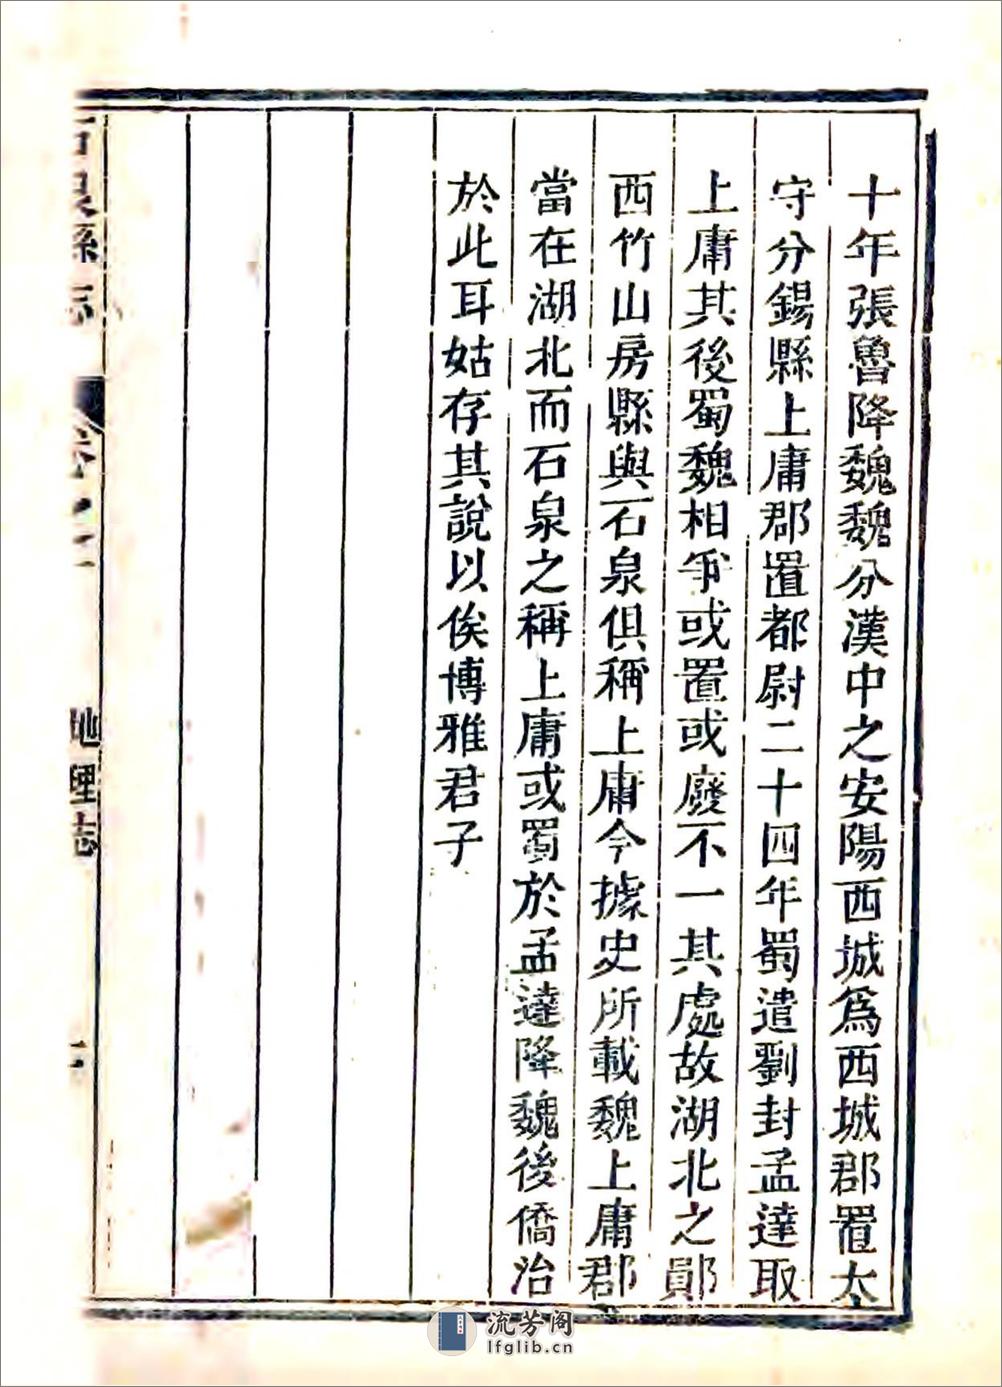 十年張魯降魏魏分漢中之安陽西城爲西城郡置太
守分鍚縣上庸郡置都尉二十四年蜀遣劉封孟達取
上庸其後蜀魏相爭或置或廢不一其處故湖北之鄖
西竹山房縣與石泉俱稱上庸今據史所載魏上庸郡
當在湖北而石泉之稱上庸或蜀於孟達降魏後僑治
於此耳姑存其說以俟博雅君子
石泉縣志
地理志
流芳阁
lfglib.cn